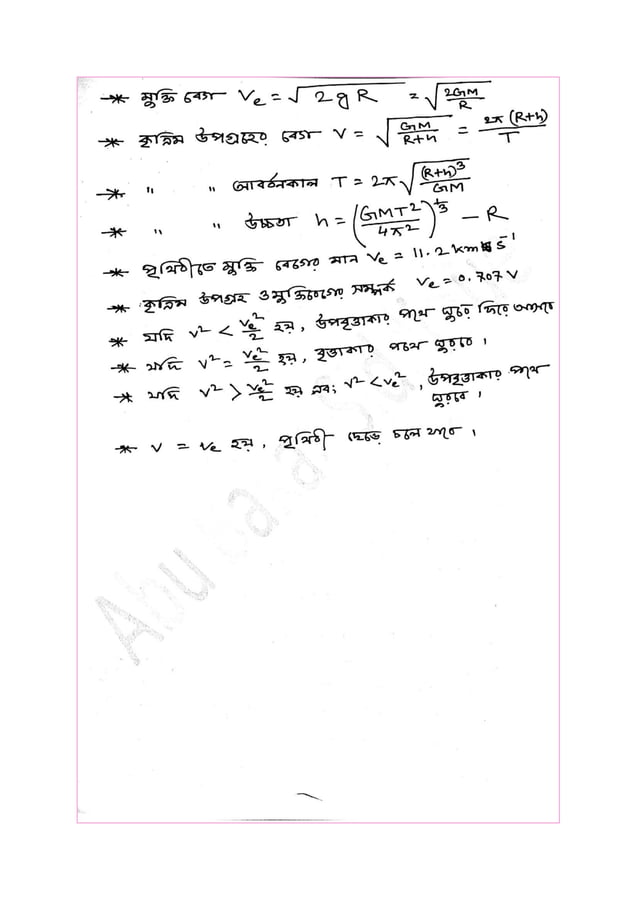 * মুক্তি বেগ Ve = √2gR = √(2GM/R)
* কৃত্রিম উপগ্রহের বেগ V = √(GM/(R+h)) = 2π(R+h)/T
* " " আবর্তনকাল T = 2π√((R+h)³/GM)
* " " উচ্চতা h = (GMT²/4π²)^(1/3) − R
* পৃথিবীতে মুক্তি বেগের মান Ve = 11.2 km s⁻¹
* কৃত্রিম উপগ্রহ ও মুক্তিবেগের সম্পর্ক Ve = 0.707 V
* যদি v² < Ve²/2 হয়, উপবৃত্তাকার পথে ঘুরে ফিরে আসবে
* যদি v² = Ve²/2 হয়, বৃত্তাকার পথে ঘুরবে।
* যদি v² > Ve²/2 হয় এবং v² < ve², উপবৃত্তাকার পথে
ঘুরবে।
* v = ve হয়, পৃথিবী ছেড়ে চলে যাবে।